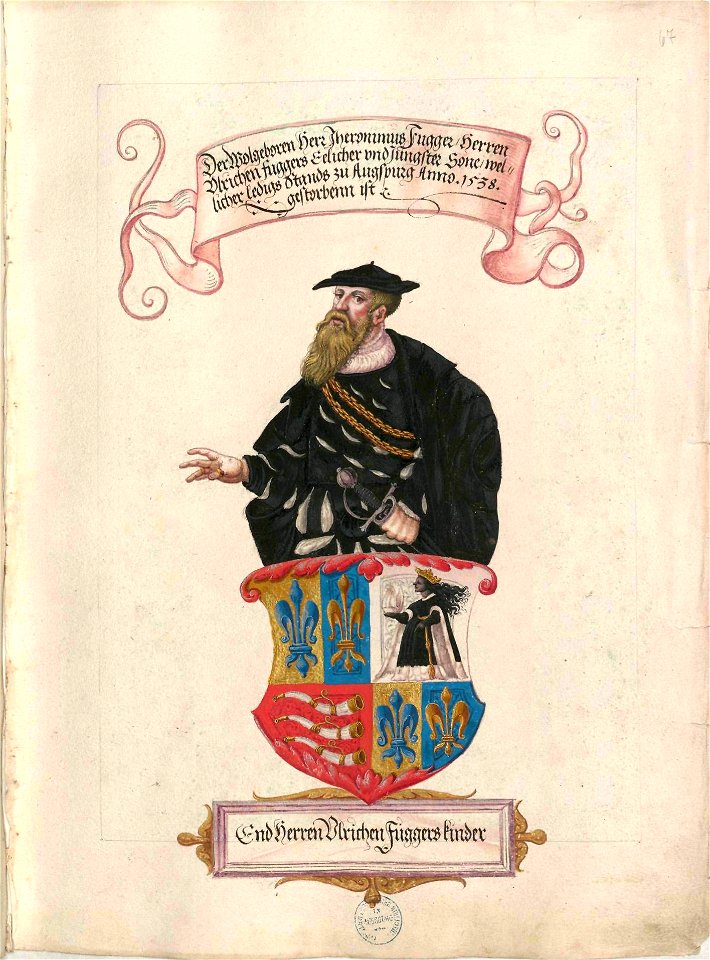 67
Der Wolgeboren Herr Jheronimus Fugger / Herren
Ulrichen Fuggers Eelicher vnd Jüngster Sone / wel=
licher ledigs Stands zu Augspurg Anno. 1538.
gestorbenn ist
End Herren Vlrichen Fuggers kinder